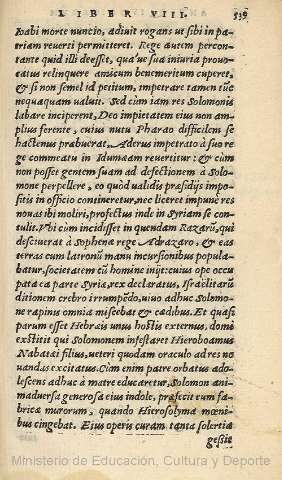 LIBER VIII. 539
Ioabi morte nuncio, adiuit rogans ut sibi in pa-
triam reuerti permitteret. Rege autem percon-
tante quid illi deesset, qua'ue sua iniuria prouo
catus relinquere amicum benemeritum cuperet,
& si non semel id petitum, impetrare tamen tūc
nequaquam ualuit. Sed cùm iam res Solomonis
labare inciperent, Deo impietatem eius non am-
plius ferente, cuius nutu Pharao difficilem se
hactenus præbuerat, Aderus impetrato à suo re
ge commeatu in Idumæam reuertitur: & cùm
non posset gentem suam ad defectionem à Solo-
mone perpellere, eo quòd ualidis præsidijs impo-
sitis in officio contineretur, nec liceret impune res
nouas ibi moliri, profectus inde in Syriam se con-
tulit. Vbi cùm incidisset in quendam Razarū, qui
desciuerat à Sophenæ rege Adrazaro, & eas
terras cum latronū manu incursionibus popula-
batur, societatem cū homine init: cuius ope occu
pata ea parte Syriæ, rex declaratus, Israelitarū
ditionem crebro irrumpēdo, uiuo adhuc Solomo-
ne rapinis omnia miscebat & cædibus. Et quasi
parum esset Hebræis unus hostis externus, domi
exstitit qui Solomonem infestaret Hieroboamus
Nabatæi filius, ueteri quodam oraculo ad res no
uandas excitatus. Cùm enim patre orbatus ado-
lescens adhuc à matre educaretur, Solomon ani-
maduersa generosa eius indole, præfecit eum fa-
bricæ murorum, quando Hierosolyma mœni-
bus cingebat. Eius operis curam tanta solertia
gessit
Ministerio de Educación, Cultura y Deporte